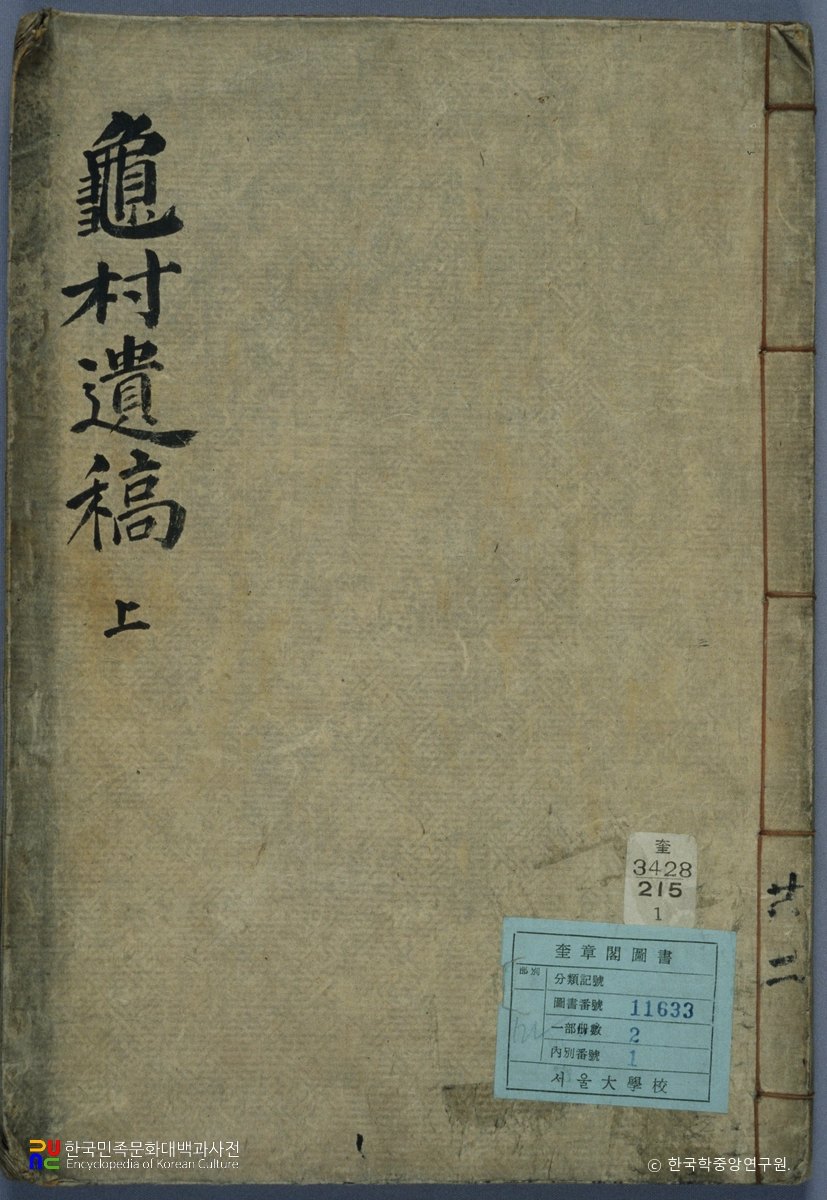 龜村遺稿 上
共二
奎
3428
215
1
奎章閣圖書
部別
分類記號
圖書番號 11633
一部冊數 2
內別番號 1
서울大學校
한국민족문화대백과사전
Encyclopedia of Korean Culture
© 한국학중앙연구원.